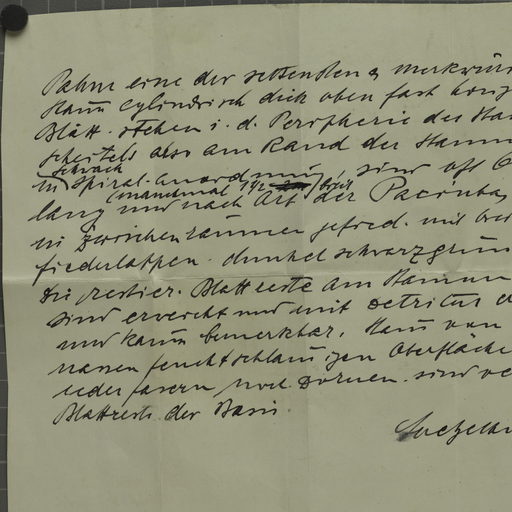 Palme eine der seltensten & merkwür
Stam cylindrisch dick oben fast
Blätt. stehen i. d. Peripherie des Sta
scheitels also am Rand des Stamm
schwach
in Spiral-anordnung, sind oft
(manchmal 1/2 breit
lang und nach Art der
in Zwischenräumen gefied. mit
fiederlappen. dunkel schwarzgrün
Die restier. Blattreste am Stamm
sind erweicht und mit Detritus
und kaum bemerkbar. Stam von
nassen feucht schlammigen Oberfläche
weder fasern noch Dornen. sind
Blattreste der Basis.